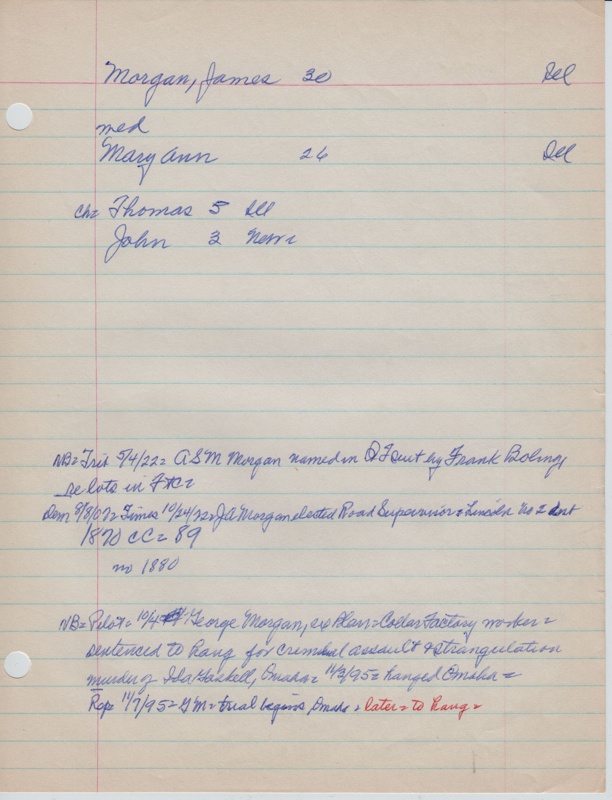 Morgan, James 30 Ill
med
Mary Ann 26 Ill
Ch= Thomas 5 Ill
John 3 Nebr
NB= Trib 5/4/22= A S M Morgan named in Q T suit by Frank Boling,
re lots in
Dem 8/8/07= Times 10/24/22= J A Morgan elected Road Supervisor= Lincoln No 2
1870 CC= 89
no 1880
NB= Pilot= 10/4 George Morgan, ex Blair= Collar Factory worker=
sentenced to hang for criminal assault & strangulation
murder of Ida Gaskell, Omaha= 11/2/95= hanged Omaha=
Rep= 11/7/95= GM= trial begins Omaha = later= to hang=